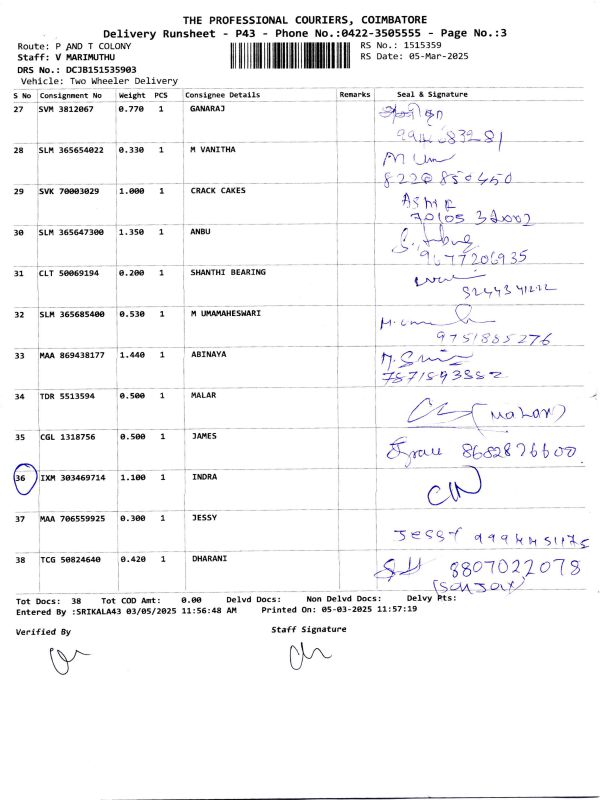 THE PROFESSIONAL COURIERS, COIMBATORE
Delivery Runsheet - P43 - Phone No.:0422-3505555 - Page No.:3
Route: P AND T COLONY RS No.: 1515359
Staff: V MARIMUTHU RS Date: 05-Mar-2025
DRS No.: DCJB151535903
Vehicle: Two Wheeler Delivery
S No Consignment No Weight PCS Consignee Details Remarks Seal & Signature
27 SVM 3812067 0.770 1 GANARAJ
28 SLM 365654022 0.330 1 M VANITHA
8220850450
29 SVK 70003029 1.000 1 CRACK CAKES
70105 32002
30 SLM 365647300 1.350 1 ANBU
9677206935
31 CLT 50069194 0.200 1 SHANTHI BEARING
32 SLM 365685400 0.530 1 M UMAMAHESWARI
9751855276
33 MAA 869438177 1.440 1 ABINAYA
34 TDR 5513594 0.500 1 MALAR
(Malar)
35 CGL 1318756 0.500 1 JAMES
8682876600
36 IXM 303469714 1.100 1 INDRA
37 MAA 706559925 0.300 1 JESSY
Jessy
38 TCG 50824640 0.420 1 DHARANI
8807022078
Tot Docs: 38 Tot COD Amt: 0.00 Delvd Docs: Non Delvd Docs: Delvy Pts:
Entered By :SRIKALA43 03/05/2025 11:56:48 AM Printed On: 05-03-2025 11:57:19
Verified By Staff Signature